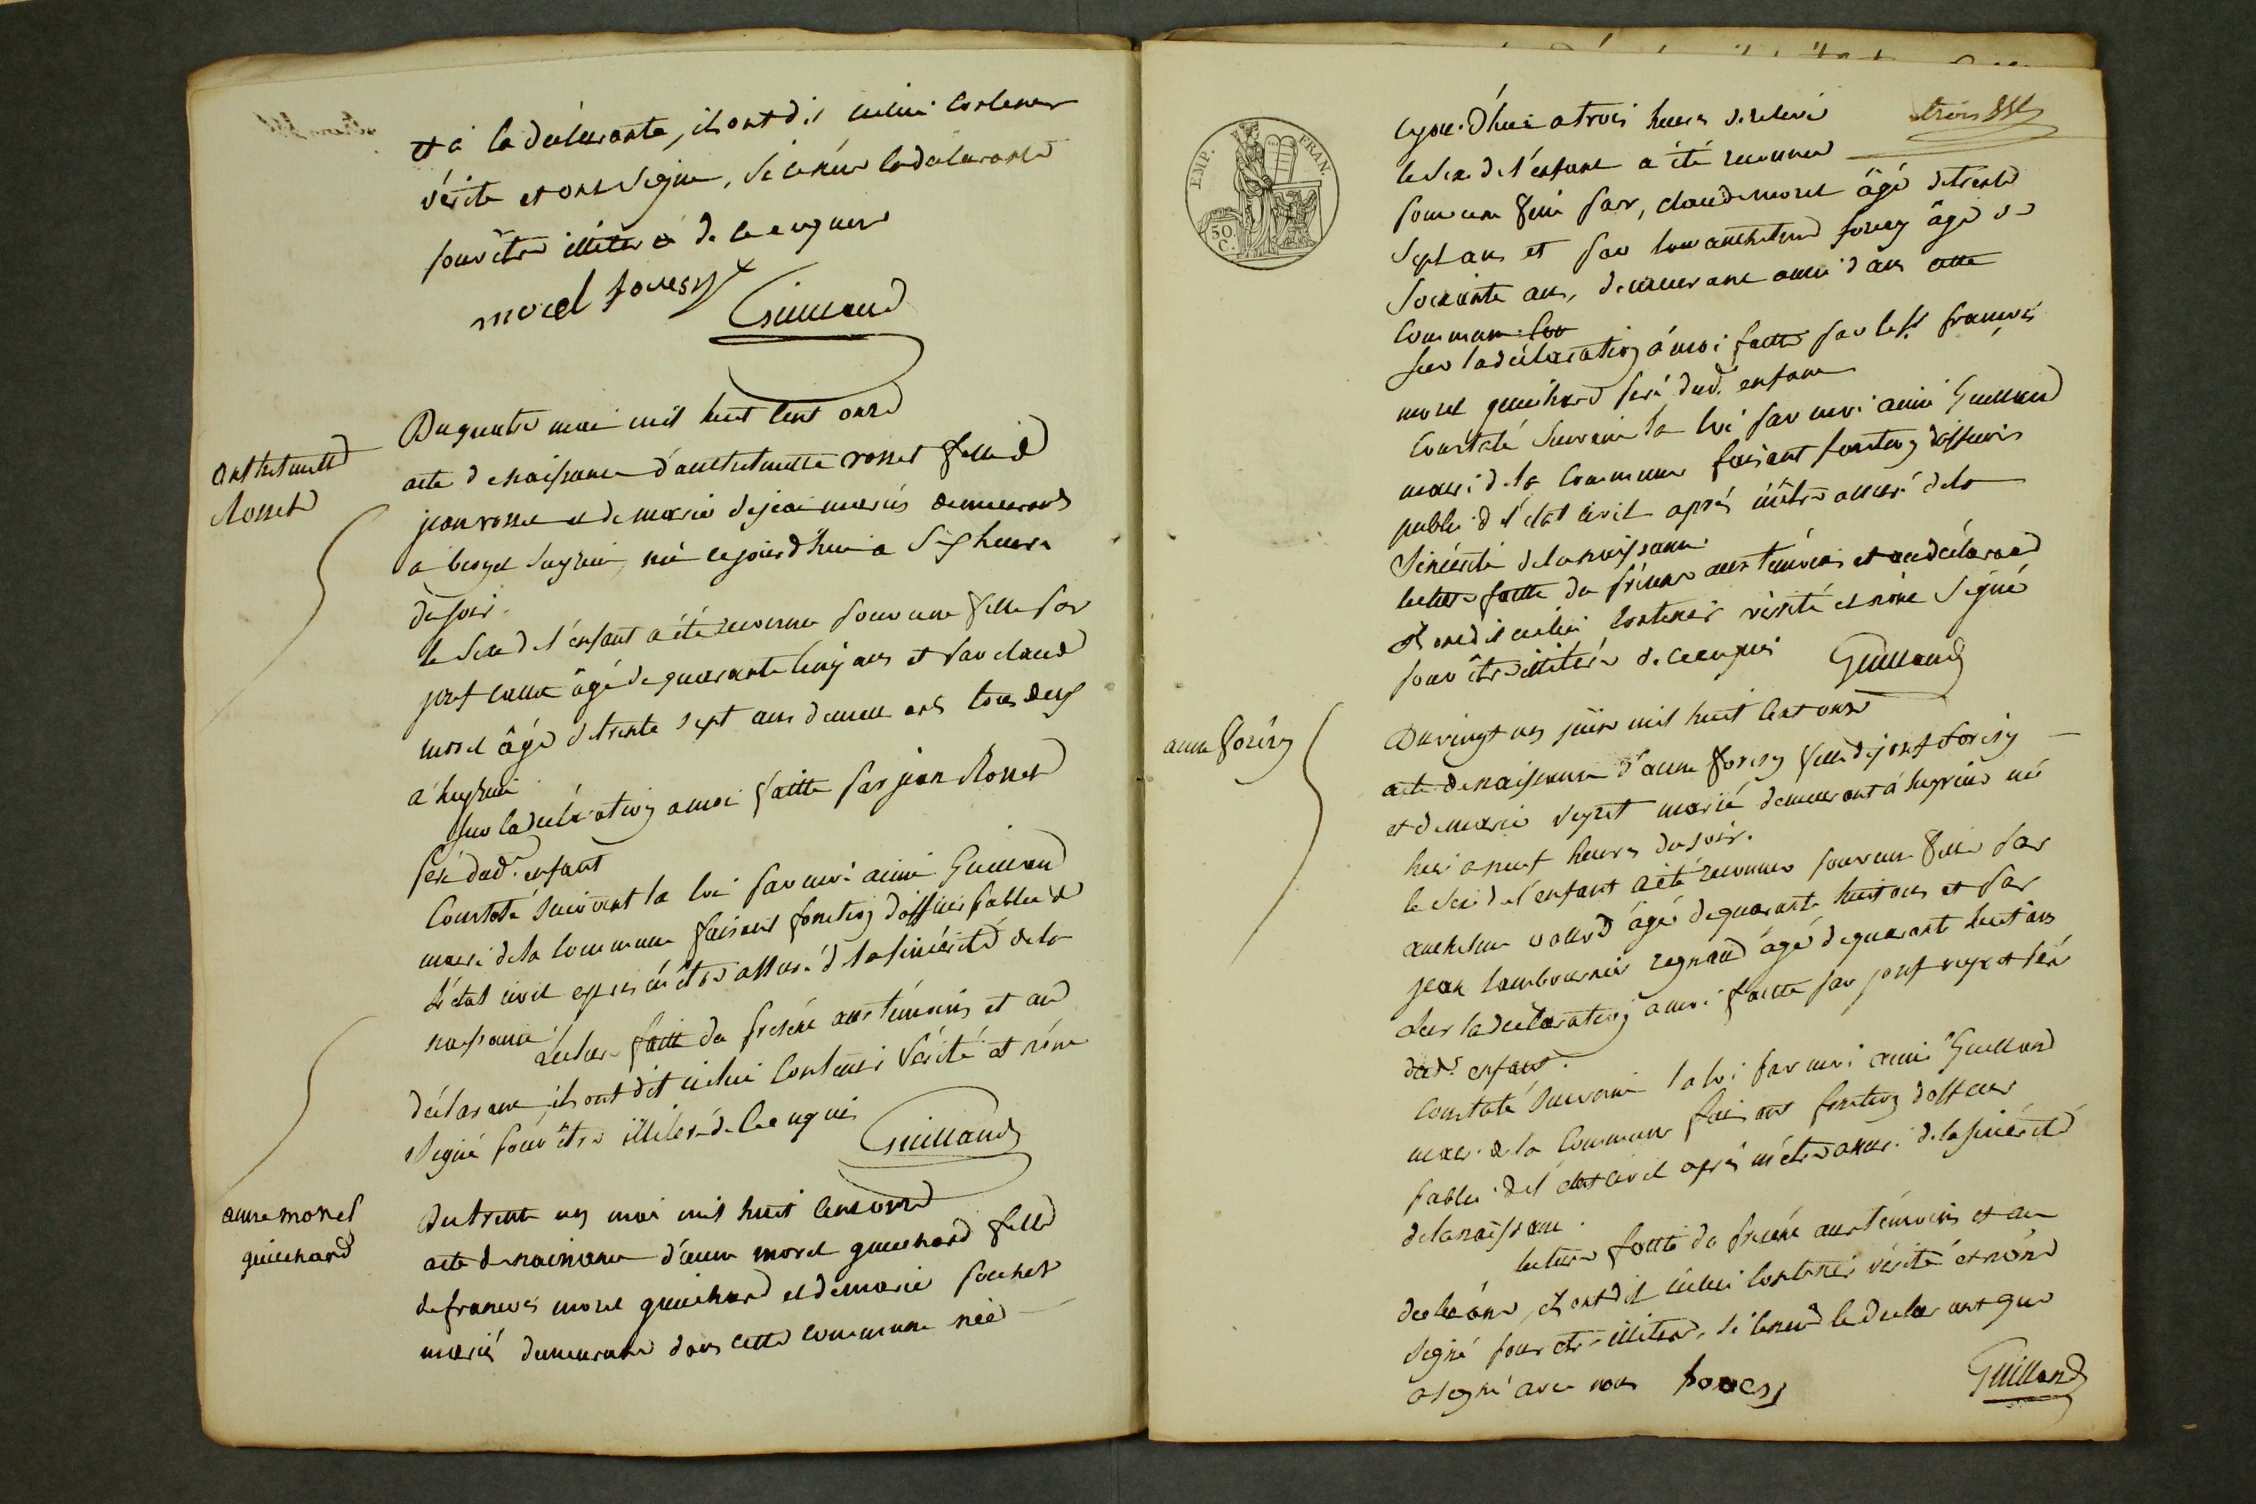 et à la déclarante, ils ont dit icelui contenir
vérité et ont signé, si ce n'est la déclarante
pour être illiteré de ce enquer
morel forest
Guilland
anthelmette
Rosset
Du quatre mai mil huit cent onze
acte de naissance d'anthelmette rosset fille de
jean rosset et de marie dejean mariés demeurants
née ce jourd'hui a heures
du soir.
le sexe de l'enfant a été reconnu pour une fille par
josef âgé de quarante cinq ans et par claude
morel âgé de trente sept ans demeurants tous deux
a
sur la déclaration a moi faitte par jean Rosset
père dud. enfant
Constaté suivant la loi par moi aimé Guilland
maire de la commune faisant fonction d'officier public de
l'état civil après m'être assuré de la sincérité de la
naissance
Lecture faitte du présent aux témoins et au
déclarant, ils ont dit icelui contenir vérité et n'ont
signé pour être illiteré de ce enquis
Guilland
anne morel
guichard
Du trente un mai mil huit cent onze
acte de naissance d'anne morel guichard fille
de francois morel guichard et de marie pochet
mariés demeurants dans cette commune née
trois
EMP. FRAN.
50.
C.
ce jour d'hui a trois heures de relevé
le sexe de l'enfant a été reconnu
pour une fille par, claude morel âgé de trente
sept ans et par anthelme forest âgé de
soixante ans, demeurant aussi dans cette
commune
sur la déclaration à moi faitte par le sr. francois
morel guichard père dud. enfant
Constaté suivant la loi par moi aimé Guilland
maire de la commune faisant fonction d'officier
public de l'état civil après m'être assuré de la
sincérité de la naissance
lecture faitte du présent aux témoins et au déclarant
ils ont dit icelui contenir vérité et n'ont signé
pour être illiterés de ce enquis Guilland
anne forest
Du vingt un juin mil huit cent onze
acte de naissance d'anne forest fille de josef forest
et de marie veyret mariés demeurant à née
hier a neuf heures du soir.
le sexe de l'enfant a été reconnu pour une fille par
anthelme âgé de quarante huit ans et par
jean regnaud âgé de quarante huit ans
sur la déclaration a moi faitte par josef père
dud. enfant.
Constaté suivant la loi par moi aimé Guilland
maire de la commune faisant fonction d'officier
public de l'état civil après m'être assuré de la sincérité
de la naissance.
lecture faitte du présent aux témoins et au
déclarant, ils ont dit icelui contenir vérité et n'ont
signé pour être illiteré, si ce n'est le déclarant qui
a signé avec nous forest
Guilland